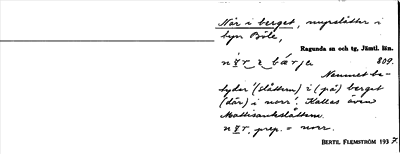 Når i berget, myrslåtter i
byn Böle,
Ragunda sn och tg, Jämtl. län.
809.
Namnet be-
tyder '(slåttern) i (på) berget
(där) i norr'. Kallas även
Mattisaukslåttern.
prep. = norr.
BERTIL FLEMSTRÖM 1937.